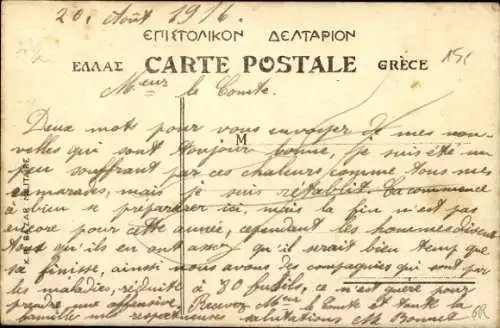 20. Août 1916.
ΕΠΙΣΤΟΛΙΚΟΝ ΔΕΛΤΑΡΙΟΝ
ΕΛΛΑΣ CARTE POSTALE GRÈCE
Mieur le Comte.
Deux mots pour vous envoyer de mes nou-
velles qui sont toujour bonne, je suis été un
peu souffrant par ces chaleurs comme tous mes
camarades, mais je suis rétablit. Ca commence
à bien se préparer ici, mais la fin n'est pas
encore pour cette année, cependant les hommes disent
tous qu'ils en ont assez qu'il serait bien temp que
sa finisse, ainsi nous avons des compagnies qui sont par
les maladies, réduite à 80 fusils, ce n'est guère pour
prendre une offensive. Recevez Mieur le Comte et toute la
famille mes respectueuses salutations M Bonnet
M
BAZAR